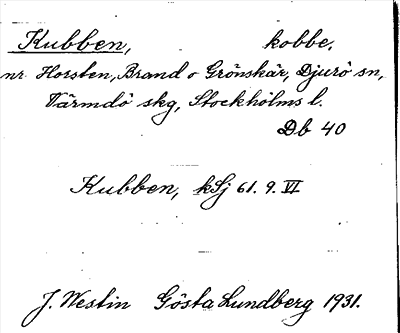 Kubben, kobbe,
nr Horsten, Brand o Grönskär, Djurö sn,
Värmdö skg, Stockholms l.
Db 40
Kubben, kSj 61. 9. VI
J. Westin Gösta Lundberg 1931.